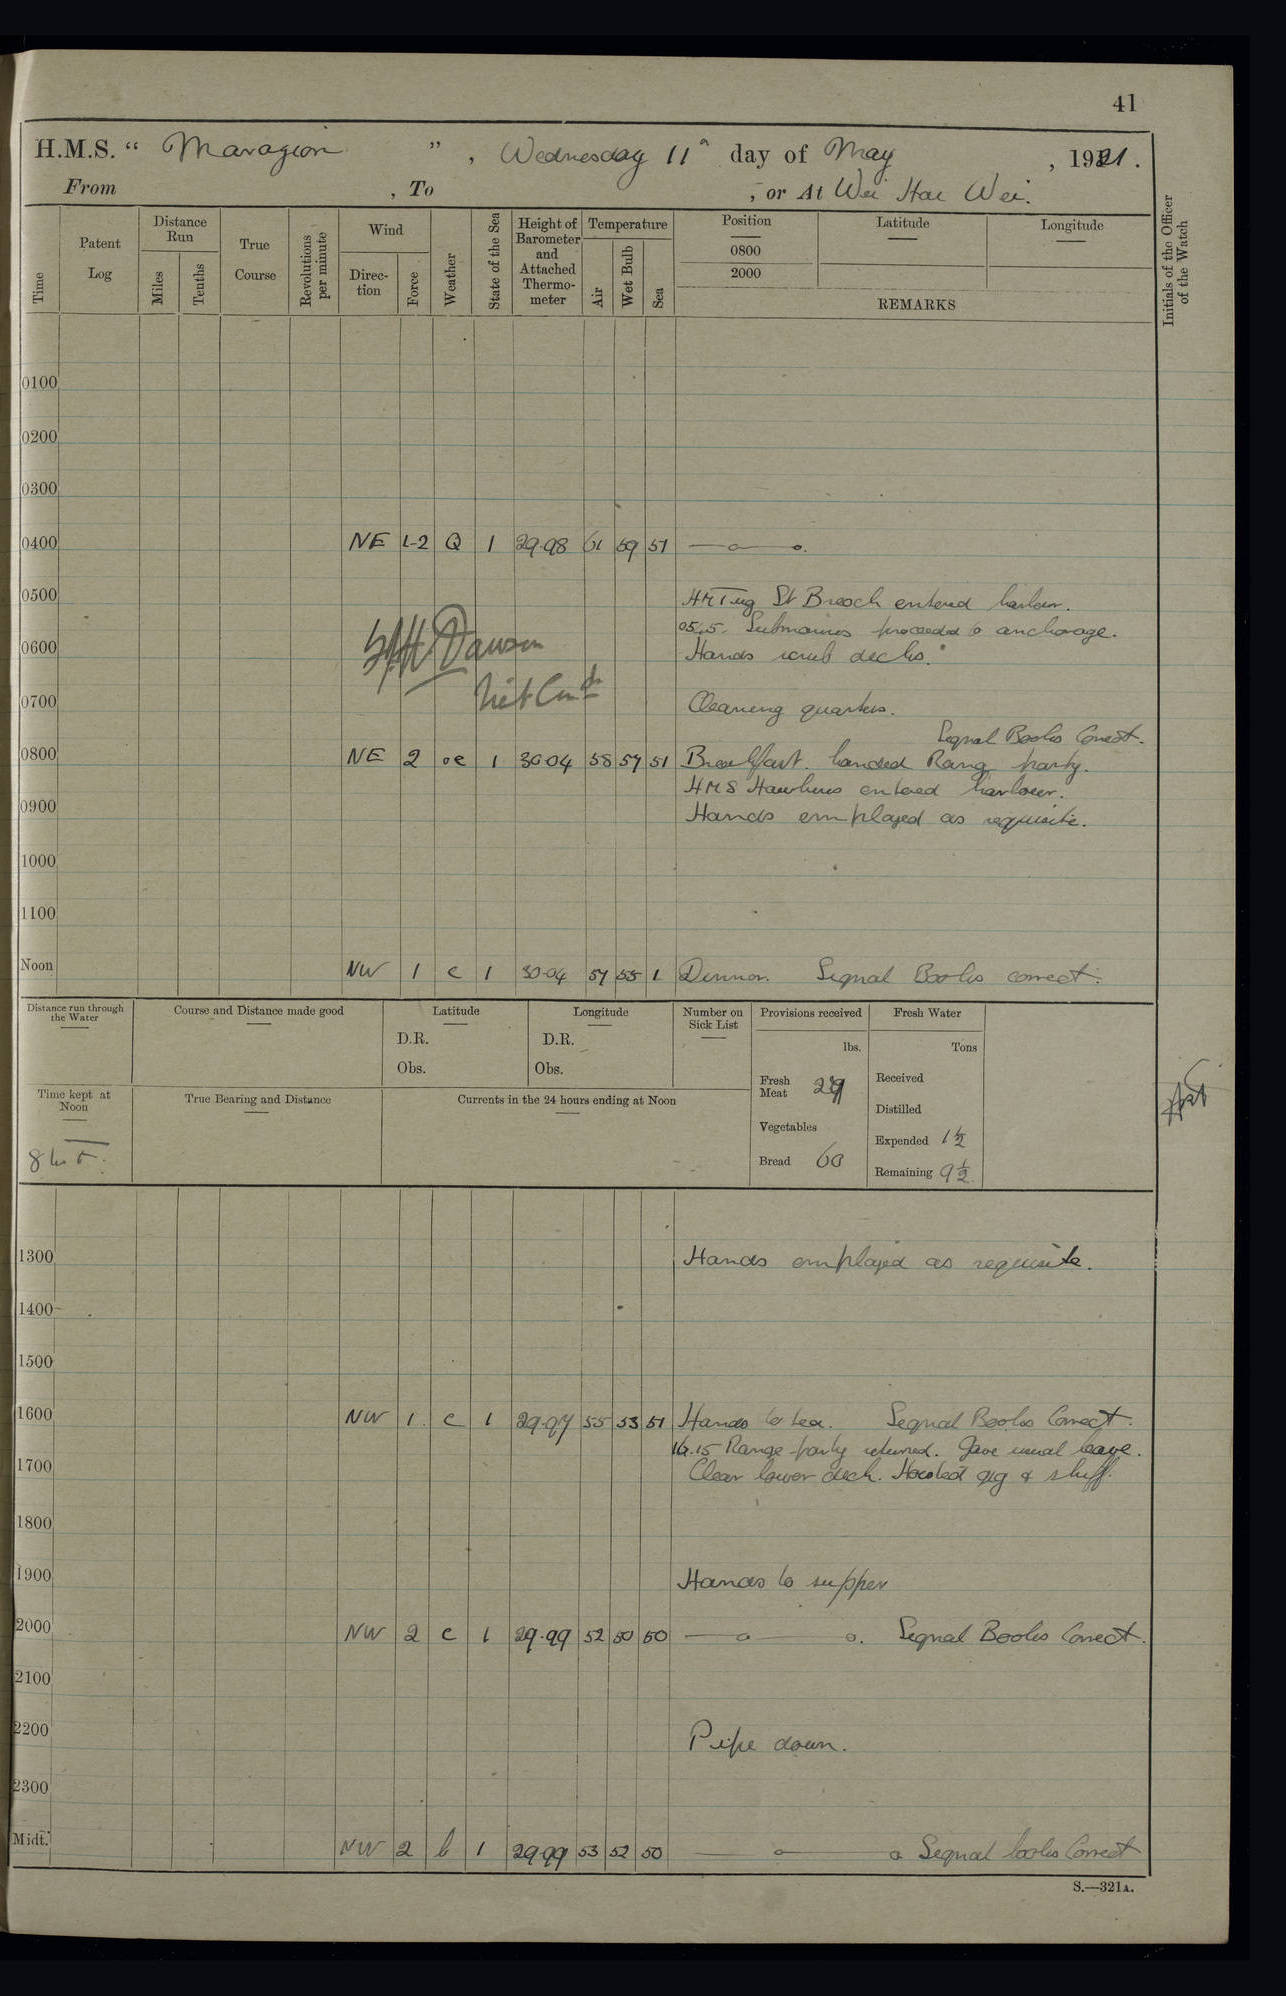 41
H.M.S. “ Marazion ” , Wednesday 11th day of May , 1921.
From , To , or At Wei Hai Wei.
Time
Patent Log
Distance Run
Miles
Tenths
True Course
Revolutions per minute
Wind
Direc-tion
Force
Weather
State of the Sea
Height of Barometer and Attached Thermo-meter
Temperature
Air
Wet Bulb
Sea
Position
0800
2000
Latitude
Longitude
REMARKS
Initials of the Officer of the Watch
0100
0200
0300
0400 NE 1-2 1 29.98 61 59 51
0500 HM Tug St Breock entered harbour.
Submarines proceeded to anchorage.
0600 Hands scrub decks.
Dawson
Lieut Cmdr
0700 Cleaning quarters.
Signal Books Correct.
0800 NE 2 oc 1 30.04 58 57 51 Breakfast. Landed Rang party.
HMS Hawkins entered harbour.
0900 Hands employed as requisite.
1000
1100
Noon NW 1 c 1 30.04 57 55 1 Dinner. Signal Books correct.
Distance run through the Water
Course and Distance made good
Latitude
D.R.
Obs.
Longitude
D.R.
Obs.
Number on Sick List
Provisions received
lbs.
Fresh Meat 29
Vegetables
Bread 60
Fresh Water
Tons
Received
Distilled
Expended 1½
Remaining 9½
Time kept at Noon
True Bearing and Distance
Currents in the 24 hours ending at Noon
1300 Hands employed as requisite.
1400
1500
1600 NW 1 c 1 29.97 55 53 51 Hands to tea. Signal Books Correct.
16.15 Range party returned. Gave usual leave.
1700 Clear lower deck. Hoisted gig & skiff.
1800
1900 Hands to supper
2000 NW 2 c 1 29.99 52 50 50 Signal Books Correct.
2100
2200 Pipe down.
2300
Midt. NW 2 b 1 29.99 53 52 50 Signal books Correct
S.—321A.